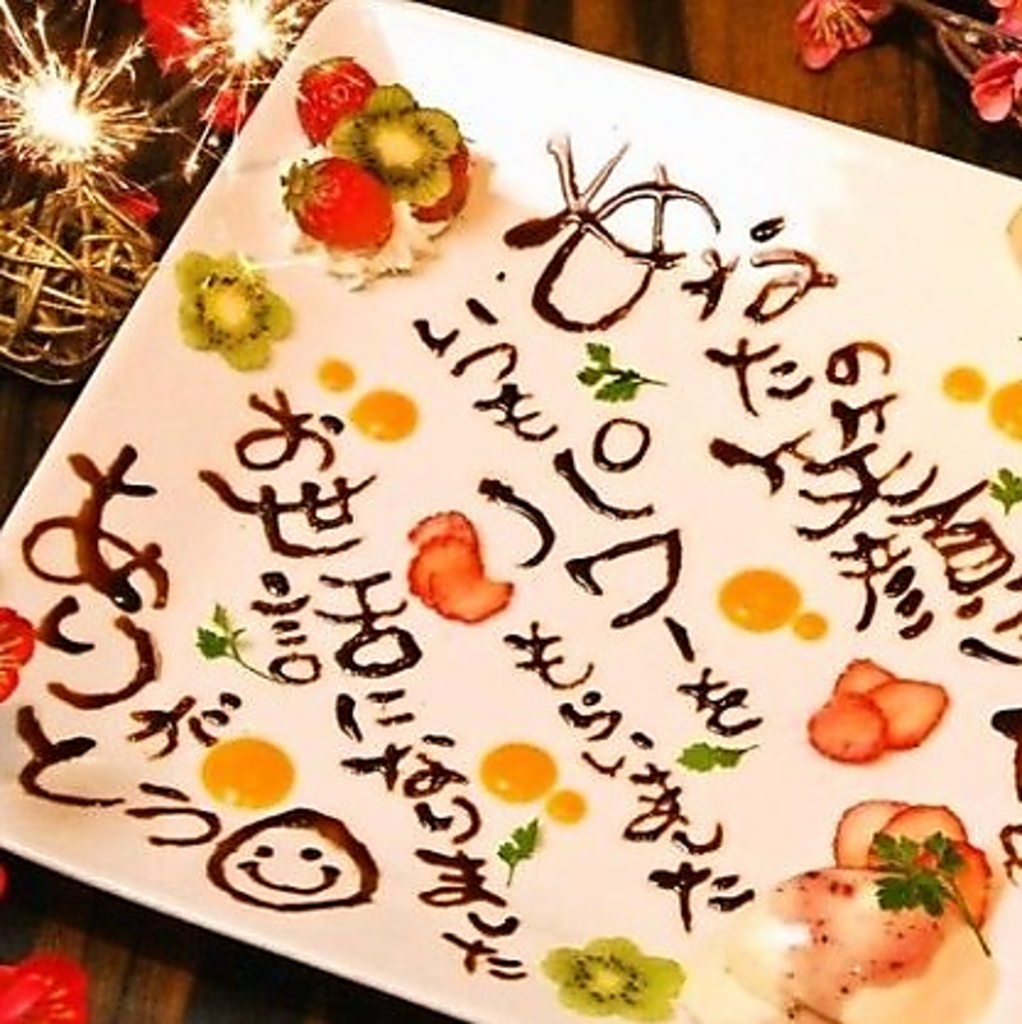 あなたの
いつもパワーをもらいました
お世話になりました
ありがとう